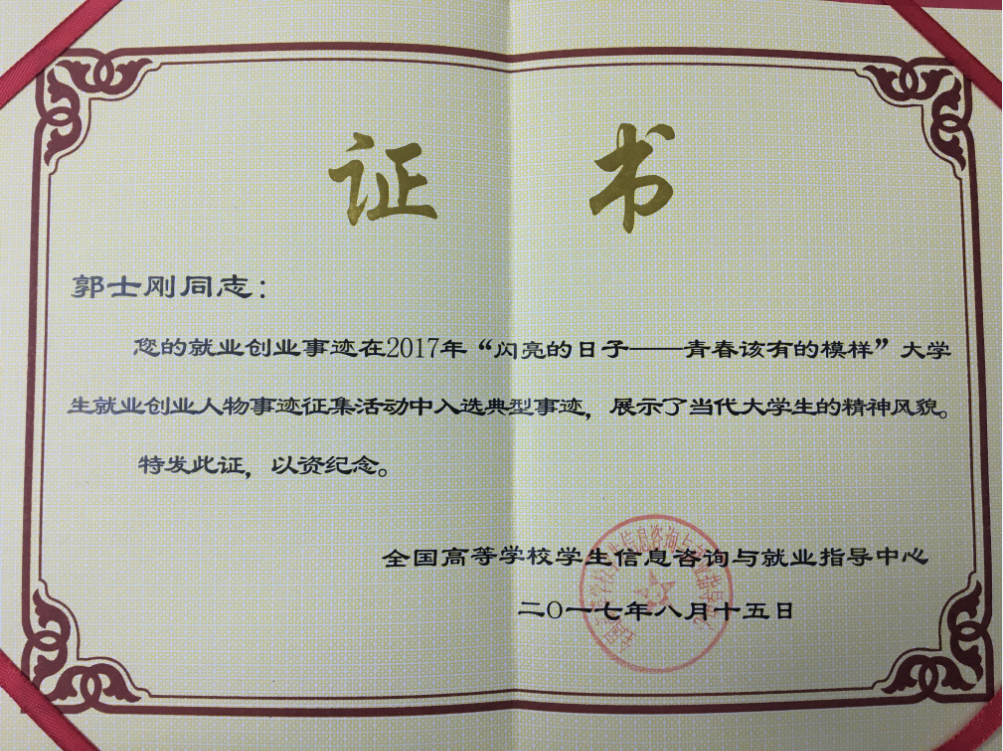 证书
郭士刚同志：
您的就业创业事迹在2017年“闪亮的日子——青春该有的模样”大学
生就业创业人物事迹征集活动中入选典型事迹，展示了当代大学生的精神风貌。
特发此证，以资纪念。
全国高等学校学生信息咨询与就业指导中心
二〇一七年八月十五日
全国高等学校学生信息咨询与就业指导中心